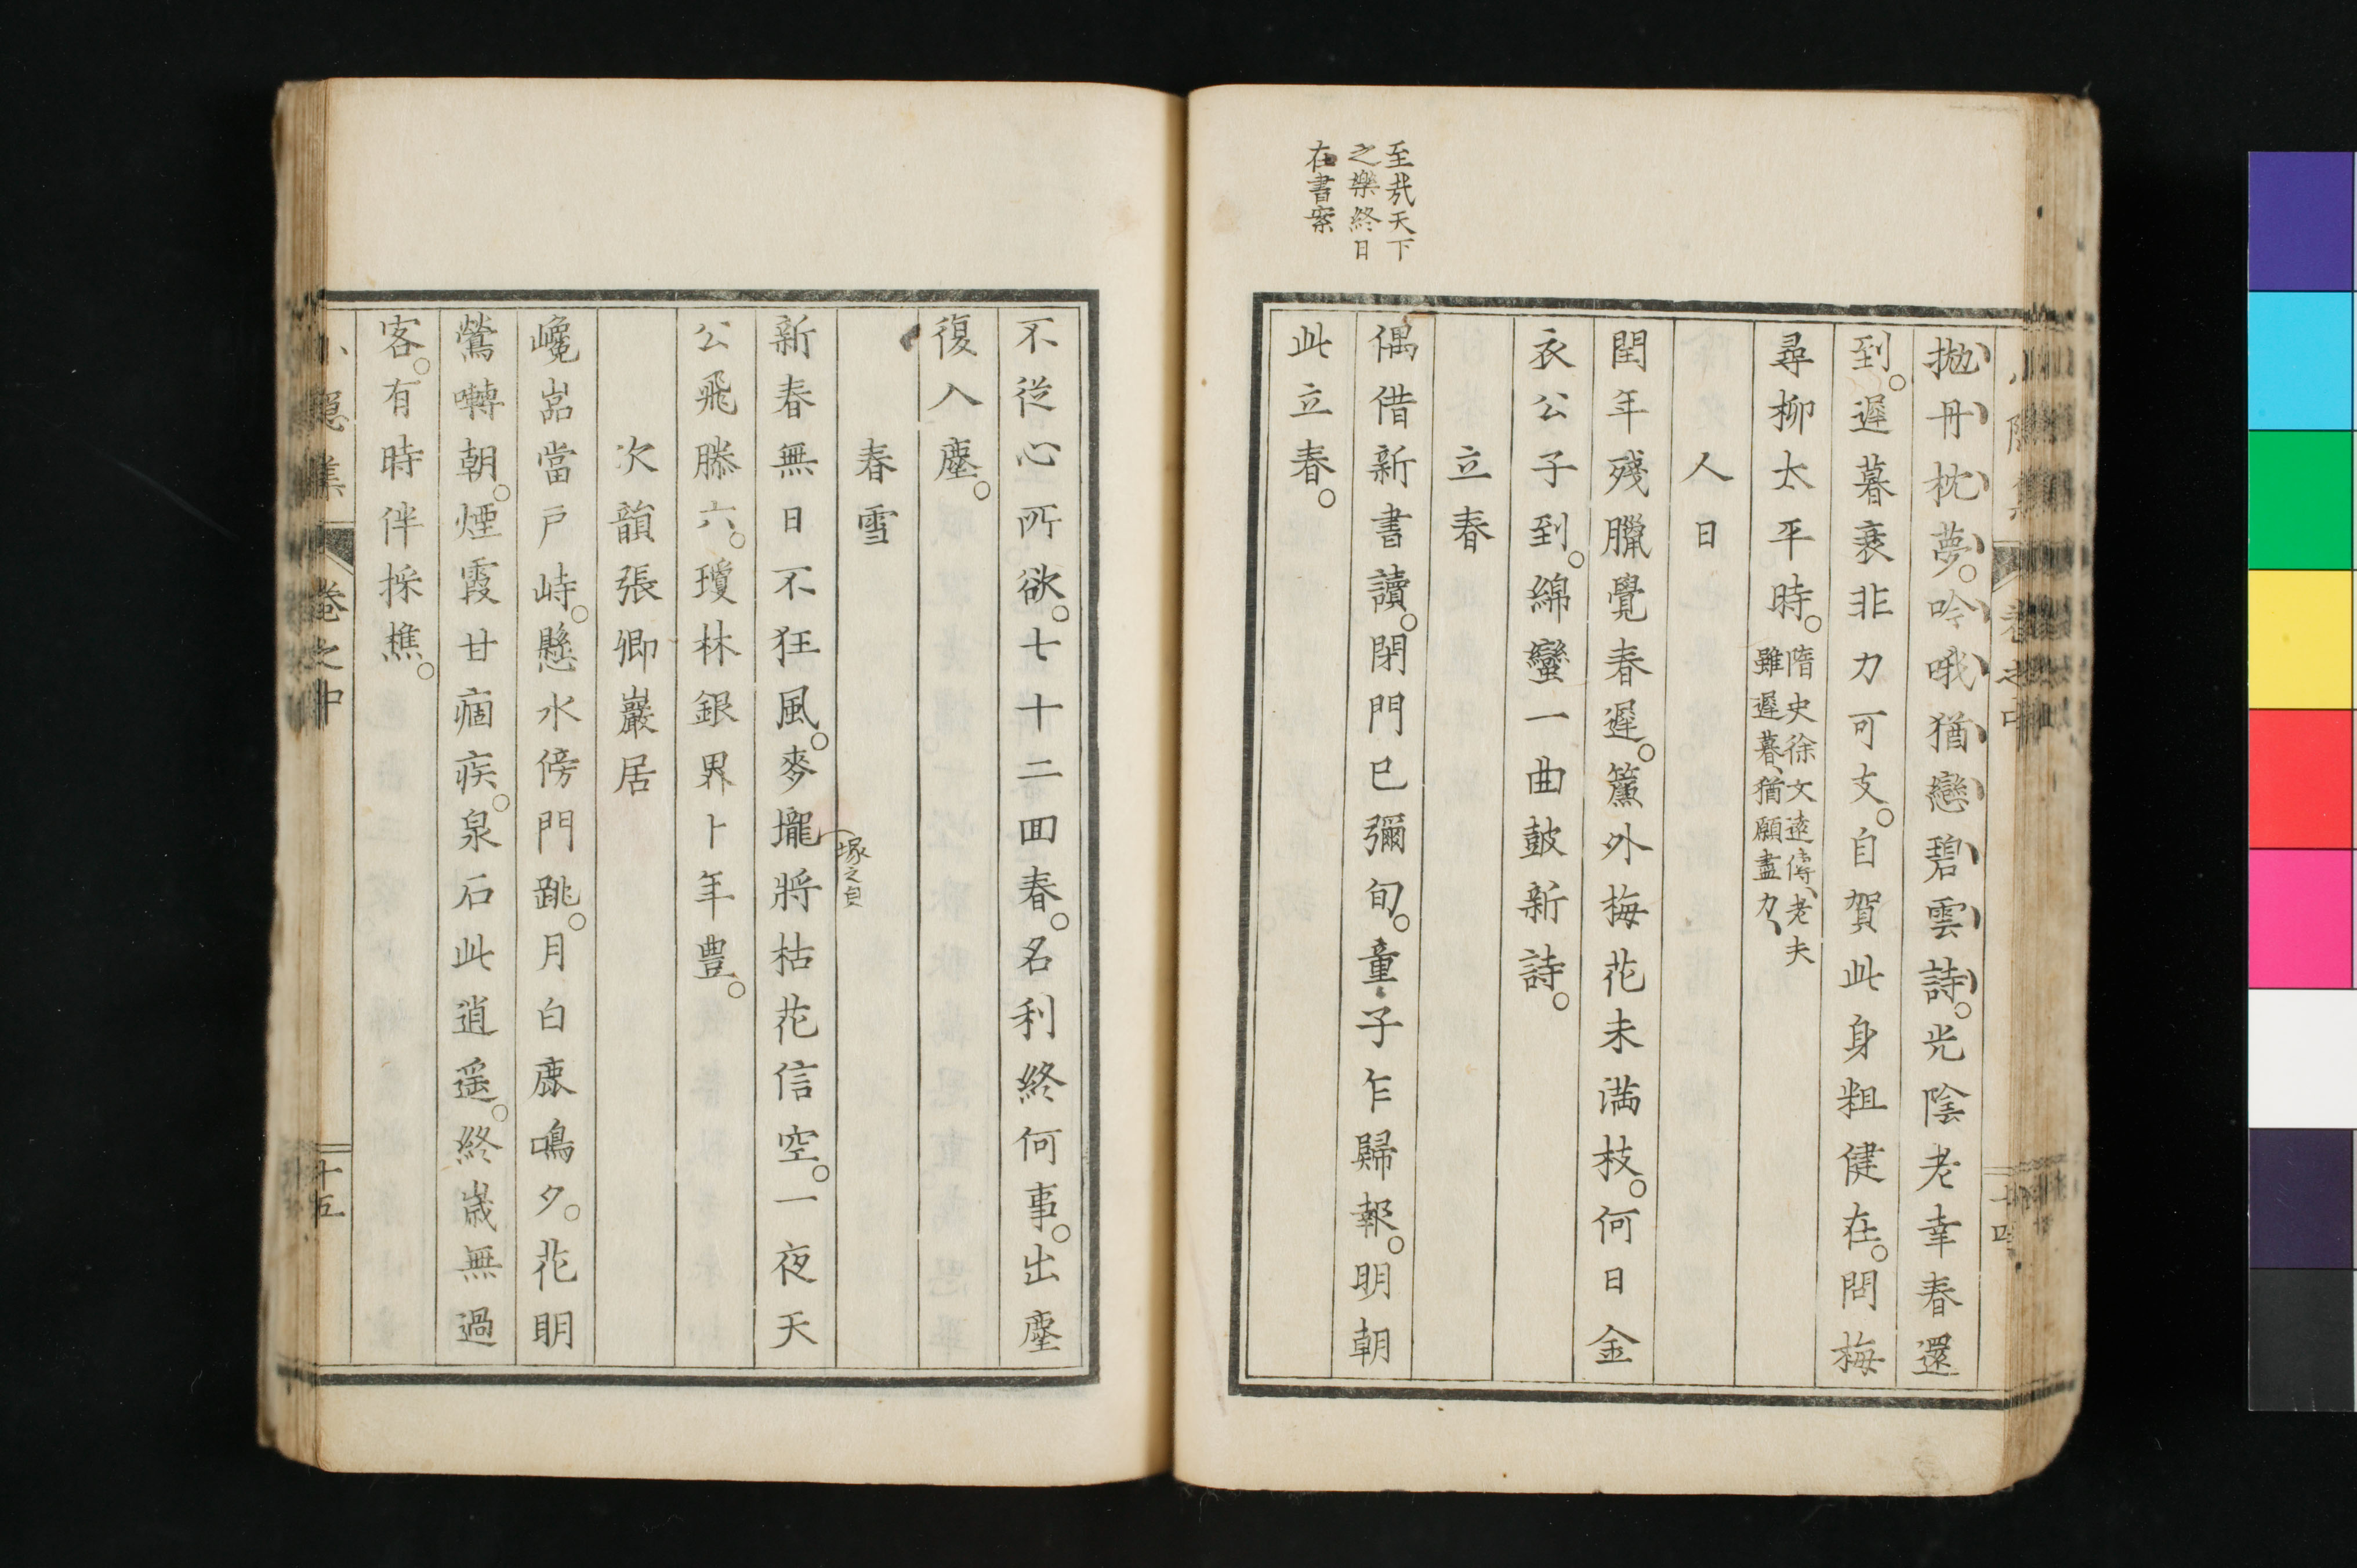 至哉天下
之樂終日
在書案
拋冊枕夢。吟哦猶戀碧雲詩。光陰老幸春還
到。遲暮衰非力可支。自賀此身粗健在。問梅
尋柳太平時。隋史徐文遠傳、老夫
雖遲暮、猶願盡力、
人日
閏年殘臘覺春遲。簾外梅花未満枝。何日金
衣公子到。綿蠻一曲皷新詩。
立春
偶借新書讀。閉門已彌旬。童子乍歸報。明朝
此立春。
不從心所欲。七十二回春。名利終何事。出塵
復入塵。
春雪
塚之皃
新春無日不狂風。麥壠將枯花信空。一夜天
公飛滕六。瓊林銀界卜年豊。
次韻張卿巖居
巉嵓當戸峙。懸水傍門跳。月白鹿鳴夕。花明
鶯囀朝。煙霞甘痼疾。泉石此逍遥。終歳無過
客。有時伴採樵。
小隱集 卷之中 十五